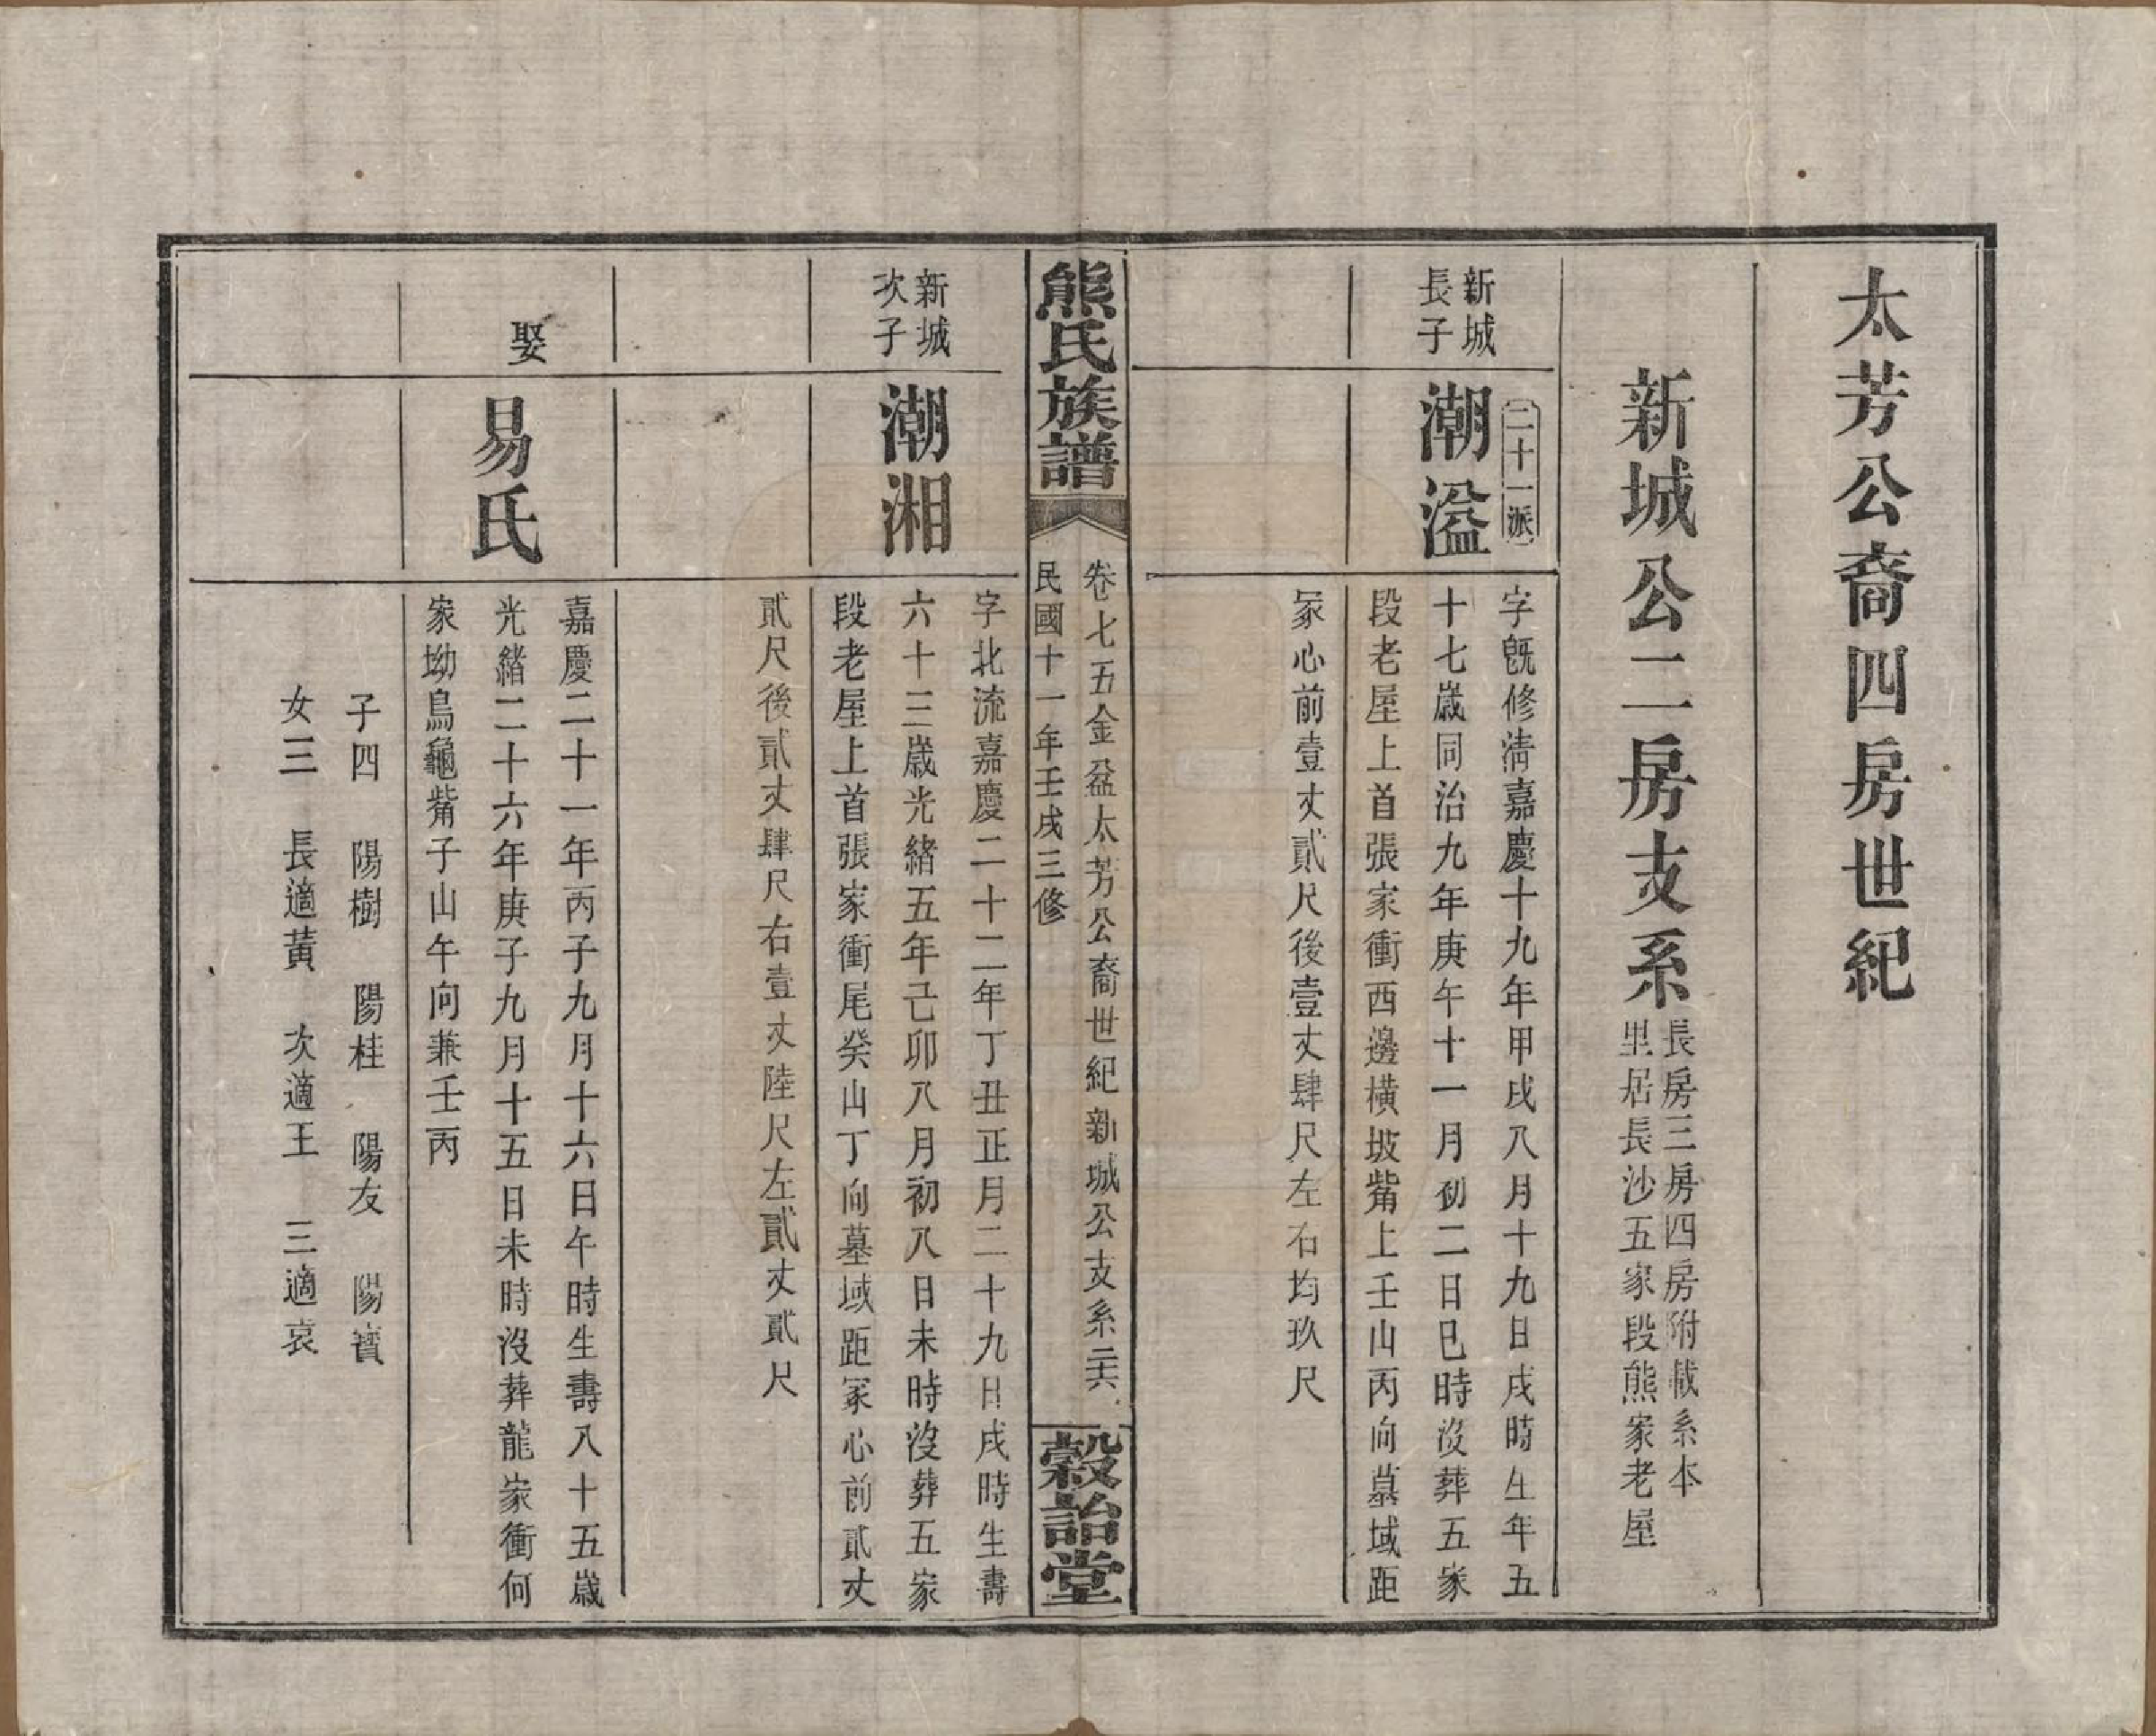 太芳公裔四房世紀
新城公二房支系
長房三房四房附載系本
里居長沙五家段熊家老屋
新城
長子
二十一派
潮溢
字旣修淸嘉慶十九年甲戌八月十九日戌時生年五
十七歲同治九年庚午十一月初二日巳時沒葬五家
段老屋上首張家衝西邊橫坡觜上壬山丙向墓域距
冢心前壹丈貳尺後壹丈肆尺左右均玖尺
熊氏族譜
卷七五金盆太芳公裔世紀新城公支系二六
民國十一年壬戌三修
穀詒堂
新城
次子
潮湘
字北流嘉慶二十二年丁丑正月二十九日戌時生壽
六十三歲光緖五年己卯八月初八日未時沒葬五家
段老屋上首張家衝尾癸山丁向墓域距冢心前貳丈
貳尺後貳丈肆尺右壹丈陸尺左貳丈貳尺
娶
易氏
嘉慶二十一年丙子九月十六日午時生壽八十五歲
光緖二十六年庚子九月十五日未時沒葬龍家衝何
家坳烏龜觜子山午向兼壬丙
子四　陽樹　陽桂　陽友　陽賓
女三　長適黃　次適王　三適袁